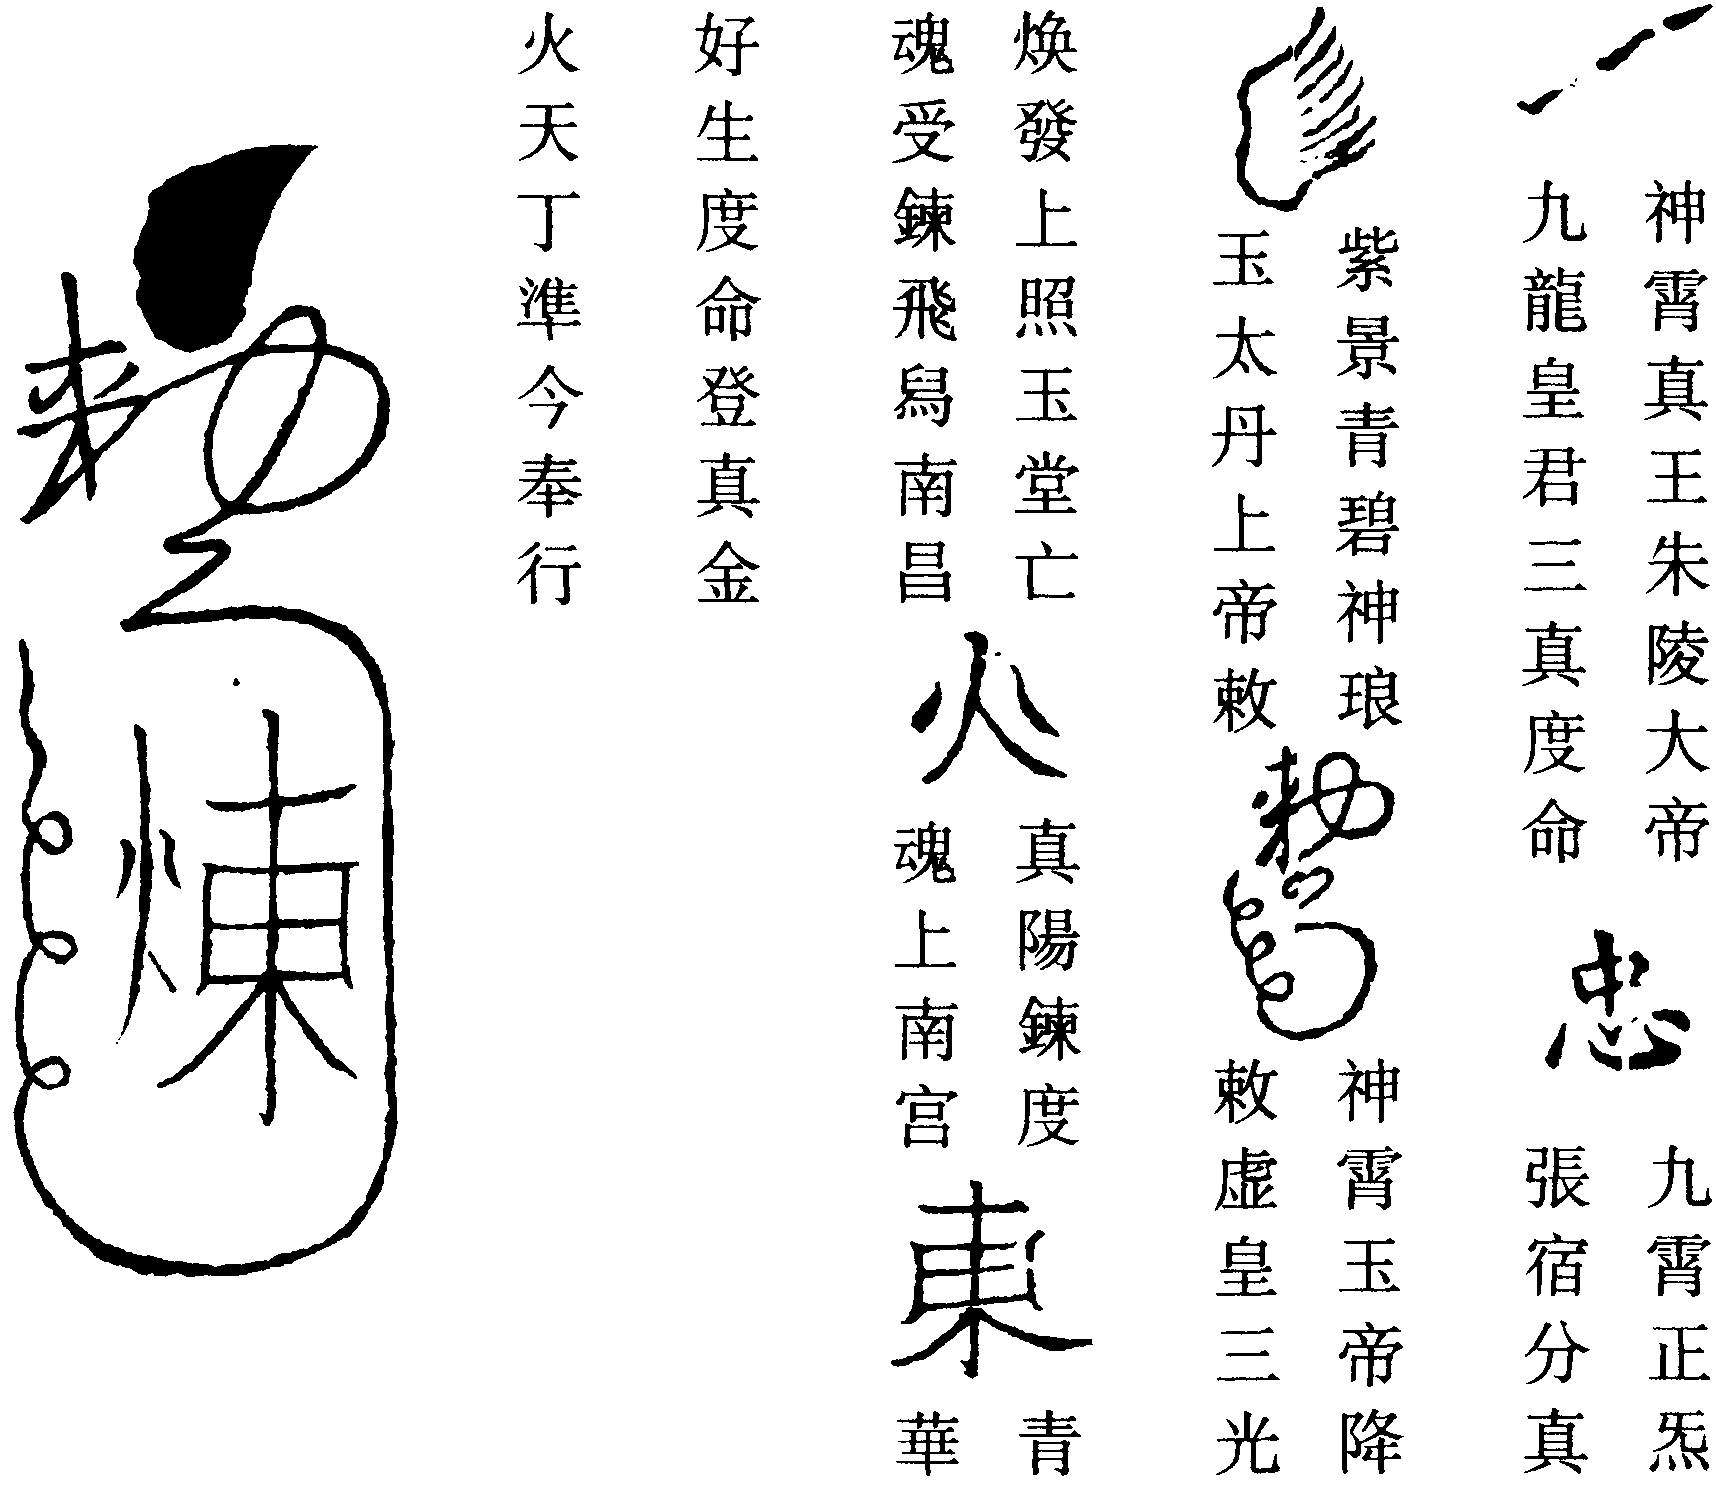 神霄真王朱陵大帝
九龍皇君三真度命
忠
九霄正炁
張宿分真
紫景青碧神琅
玉太丹上帝敕
神霄玉帝降
敕虚皇三光
焕發上照玉堂亡
魂受鍊飛舄南昌
火
真陽鍊度
魂上南宫
東
青
華
好生度命登真金
火天丁準今奉行
煉